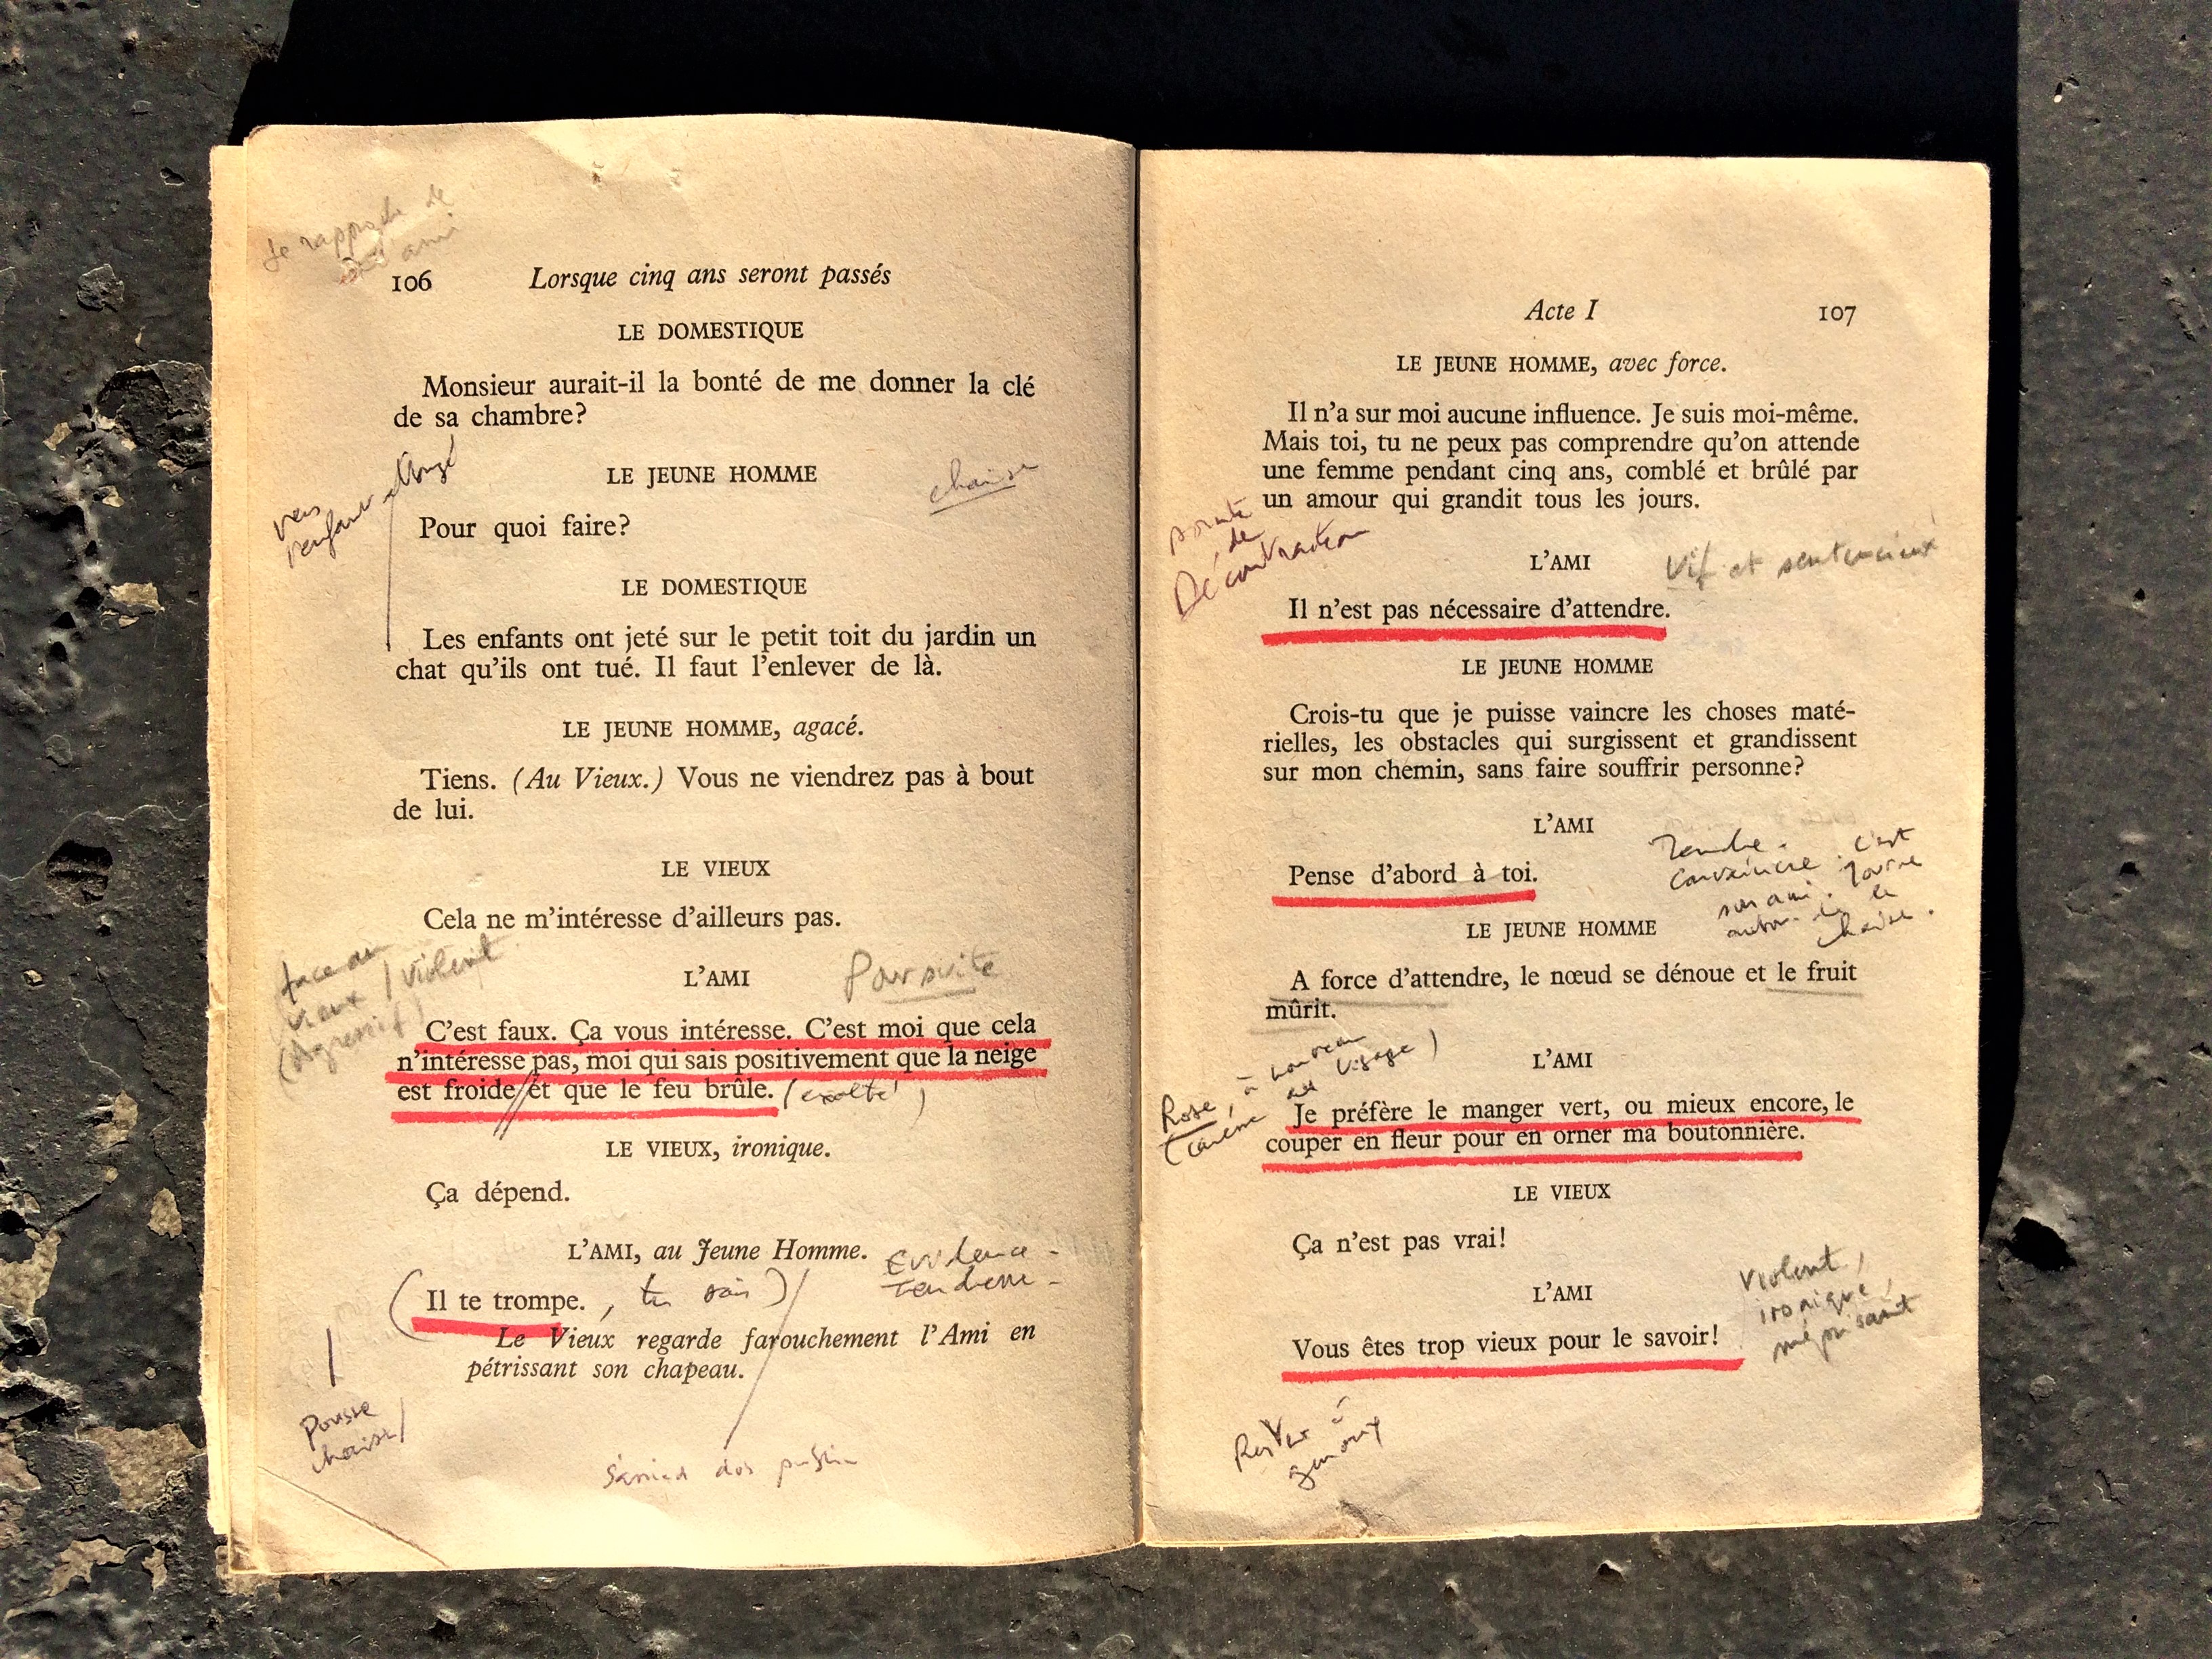 Je rapproche de
l'ami
106 Lorsque cinq ans seront passés
LE DOMESTIQUE
Monsieur aurait-il la bonté de me donner la clé
de sa chambre?
LE JEUNE HOMME
chaise
vers
Pour quoi faire?
LE DOMESTIQUE
Les enfants ont jeté sur le petit toit du jardin un
chat qu'ils ont tué. Il faut l'enlever de là.
LE JEUNE HOMME, agacé.
Tiens. (Au Vieux.) Vous ne viendrez pas à bout
de lui.
LE VIEUX
Cela ne m'intéresse d'ailleurs pas.
face au
vieux / violent
(Agressif)
L'AMI
Poursuite
C'est faux. Ça vous intéresse. C'est moi que cela
n'intéresse pas, moi qui sais positivement que la neige
est froide et que le feu brûle. (exalté)
LE VIEUX, ironique.
Ça dépend.
L'AMI, au Jeune Homme.
Evidence -
Tendresse -
(Il te trompe., tu sais)
Le Vieux regarde farouchement l'Ami en
pétrissant son chapeau.
Pousse
chaise
dos public
Acte I 107
LE JEUNE HOMME, avec force.
Il n'a sur moi aucune influence. Je suis moi-même.
Mais toi, tu ne peux pas comprendre qu'on attende
une femme pendant cinq ans, comblé et brûlé par
un amour qui grandit tous les jours.
pointe
de
Décontraction
L'AMI
Vif et sentencieux
Il n'est pas nécessaire d'attendre.
LE JEUNE HOMME
Crois-tu que je puisse vaincre les choses maté-
rielles, les obstacles qui surgissent et grandissent
sur mon chemin, sans faire souffrir personne?
L'AMI
Tendre.
Convaincre. C'est
son ami. Tourne
autour de la
chaise.
Pense d'abord à toi.
LE JEUNE HOMME
A force d'attendre, le nœud se dénoue et le fruit
mûrit.
L'AMI
Rose, à nouveau
(caresse au visage)
Je préfère le manger vert, ou mieux encore, le
couper en fleur pour en orner ma boutonnière.
LE VIEUX
Ça n'est pas vrai!
L'AMI
Violent,
ironique,
méprisant
Vous êtes trop vieux pour le savoir!
à
genoux